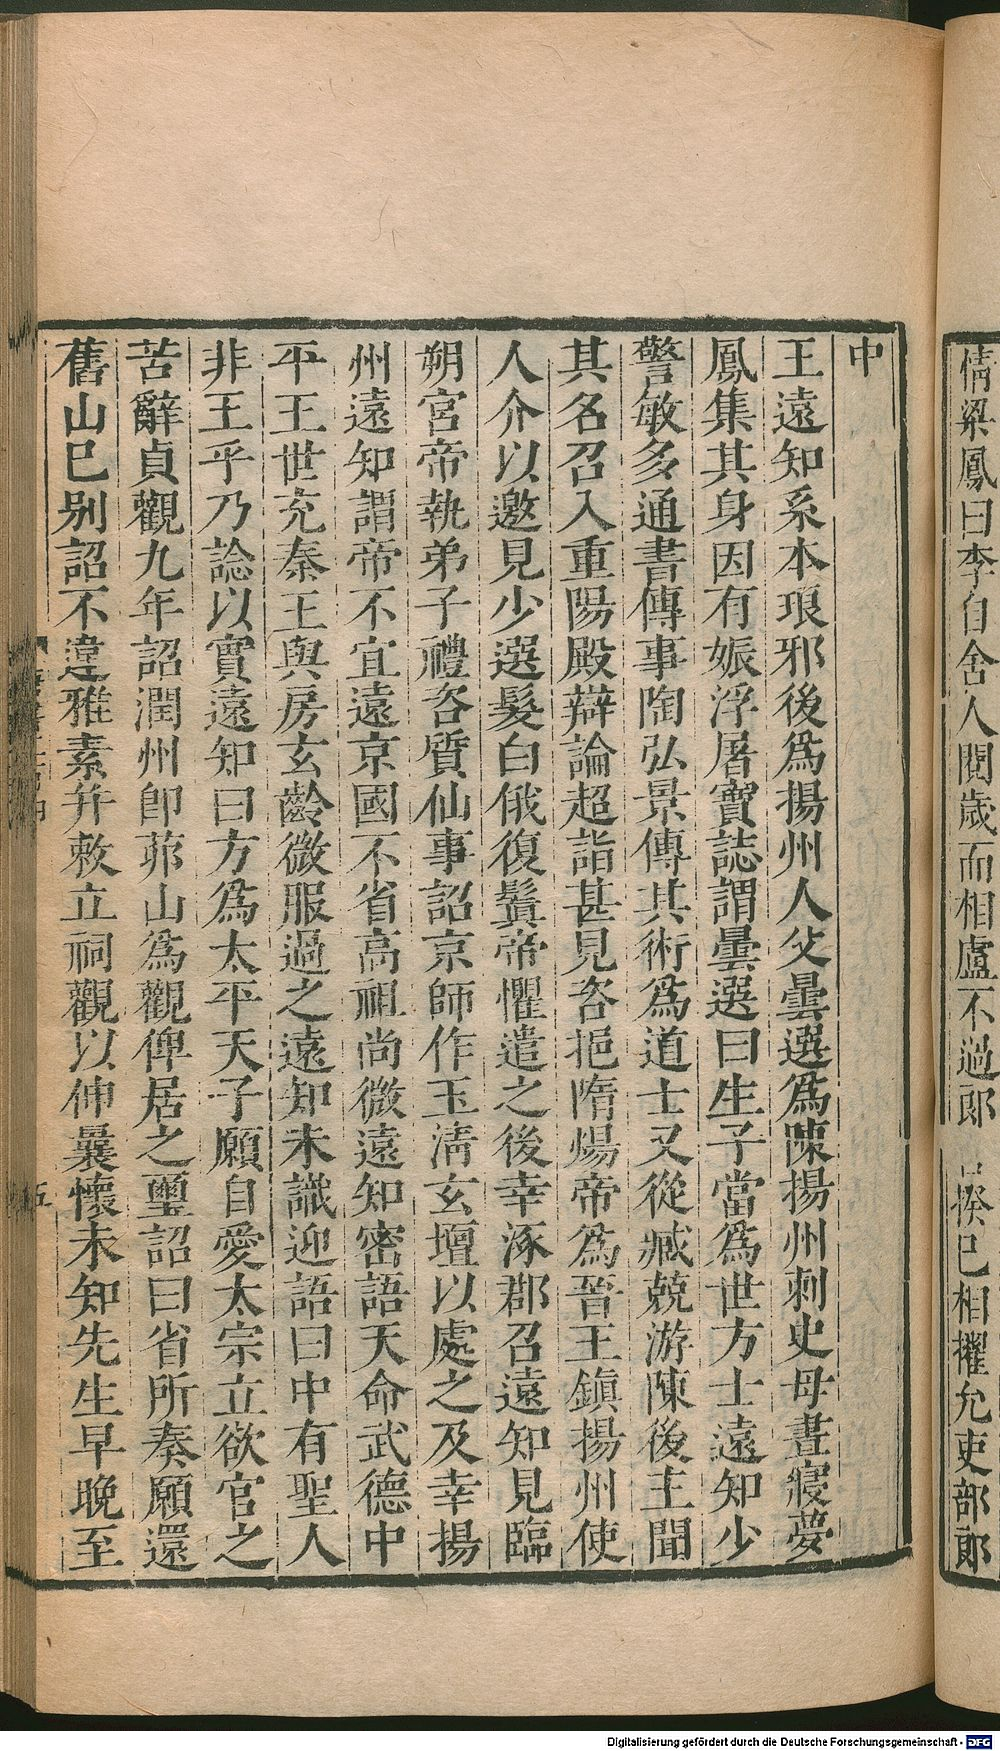 情梁鳳曰李自舍人閱歲而相盧不過郎
揆已相擢允吏部郎
中
王遠知系本琅邪後爲揚州人父曇選爲陳揚州刺史母晝寢夢
鳳集其身因有娠浮屠寶誌謂曇選曰生子當爲世方士遠知少
警敏多通書傳事陶弘景傳其術爲道士又從臧兢游陳後主聞
其名召入重陽殿辯論超詣甚見咨挹隋煬帝爲晉王鎮揚州使
人介以邀見少選髮白俄復鬒帝懼遣之後幸涿郡召遠知見臨
朔宮帝執弟子禮咨質仙事詔京師作玉清玄壇以處之及幸揚
州遠知謂帝不宜遠京國不省高祖尚微遠知密語天命武德中
平王世充秦王與房玄齡微服過之遠知未識迎語曰中有聖人
非王乎乃諗以實遠知曰方爲太平天子願自愛太宗立欲官之
苦辭貞觀九年詔潤州卽茅山爲觀俾居之璽詔曰省所奏願還
舊山已别詔不違雅素并敕立祠觀以伸曩懷未知先生早晚至
五
Digitalisierung gefördert durch die Deutsche Forschungsgemeinschaft - DFG